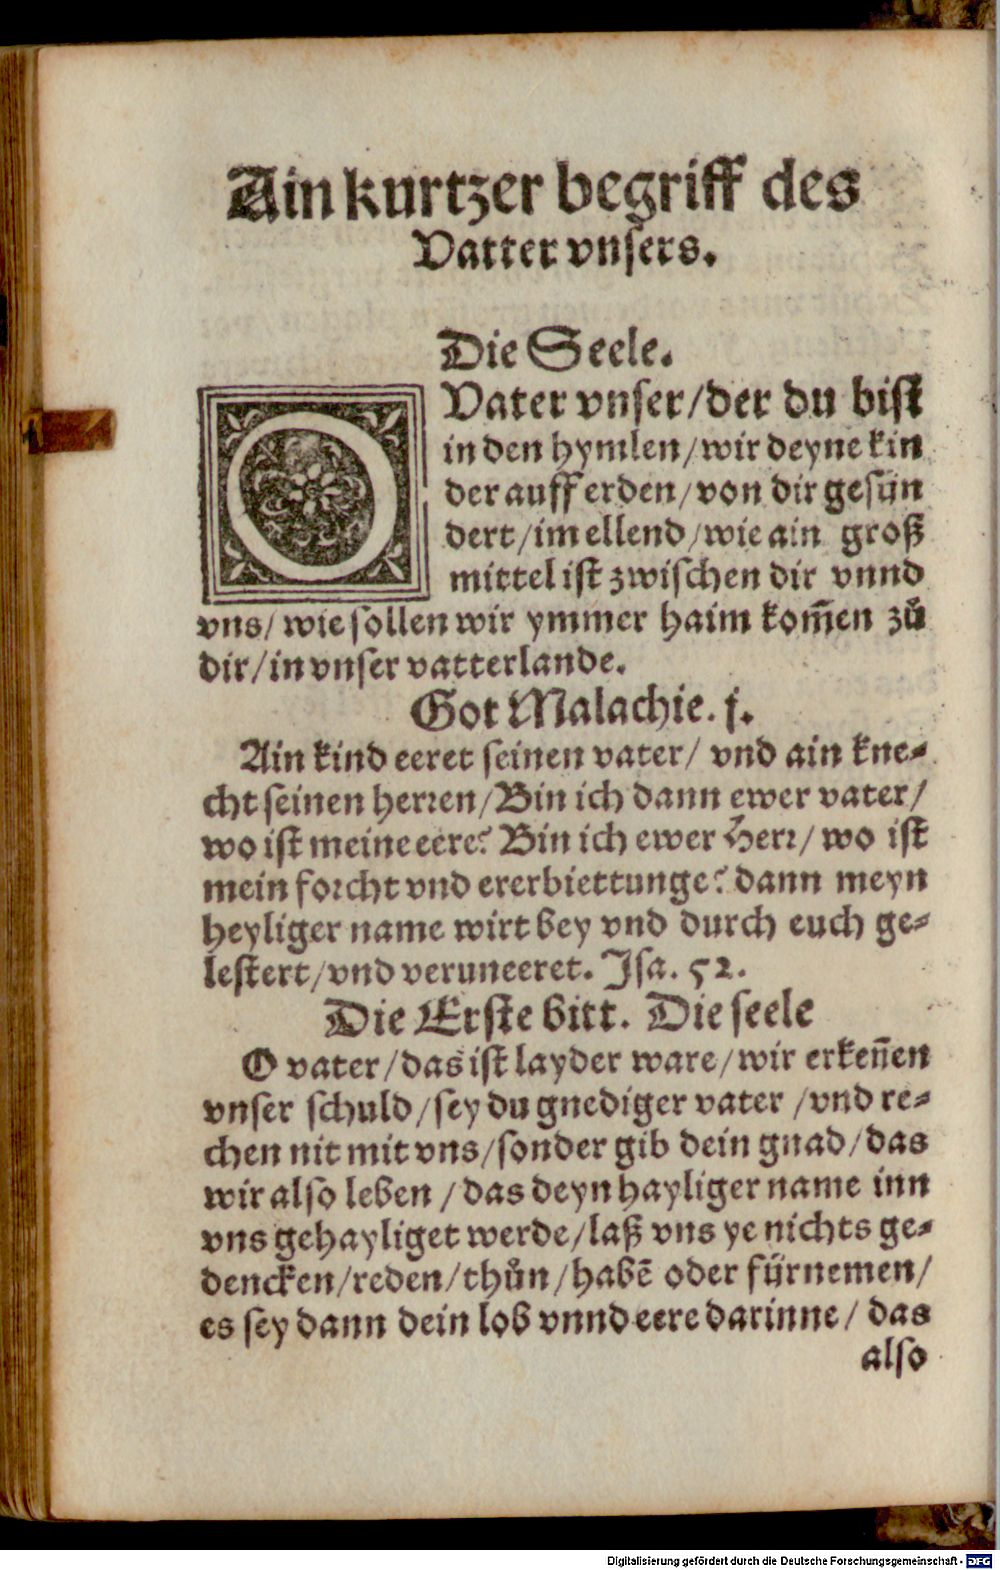 Ain kurtzer begriff des
Vatter vnsers.
Die Seele.
O Vater vnser/der du bist
in den hymlen/wir deyne kin
der auff erden/von dir gesün
dert/im ellend/wie ain groß
mittel ist zwischen dir vnnd
vns/wie sollen wir ymmer haim kom̄en zů
dir/in vnser vatterlande.
Got Malachie. j.
Ain kind eeret seinen vater/ vnd ain kne-
cht seinen herren/Bin ich dann ewer vater/
wo ist meine eere? Bin ich ewer Herr/wo ist
mein forcht vnd ererbiettunge? dann meyn
heyliger name wirt bey vnd durch euch ge-
lestert/vnd veruneeret. Jsa. 52.
Die Erste bitt. Die seele
O vater/das ist layder ware/wir erken̄en
vnser schuld/sey du gnediger vater /vnd re-
chen nit mit vns/sonder gib dein gnad/das
wir also leben /das deyn hayliger name inn
vns gehayliget werde/laß vns ye nichts ge-
dencken/reden/thůn/habē oder fürnemen/
es sey dann dein lob vnnd eere darinne/ das
also
Digitalisierung gefördert durch die Deutsche Forschungsgemeinschaft - DFG